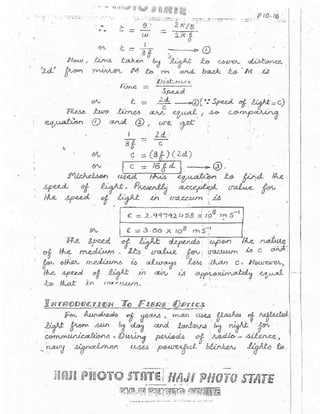 P10-16
∴ t = θ/ω = 2π/8 / 2πf
or t = 1/8f → ①
Now, time taken by light to cover distance
'2d' from mirror M to m and back to M is
Time = Distance/Speed
or t = 2d/c → ② (∵ Speed of light = c)
These two times are equal, so comparing
equation ① and ②, we get
1/8f = 2d/c
or c = (8f)(2d)
or c = 16fd → ③
Michelson used this equation to find the
speed of light. Presently accepted value for
the speed of light in vaccum is
c = 2.99792458 × 10⁸ ms⁻¹
or c = 3.00 × 10⁸ ms⁻¹
The speed of light depends upon the nature
of the medium. It's value for vacuum is c and
for other mediums is always less than c. However,
the speed of light in air is approximately equal
to that in vacuum.
INTRODUCTION TO FIBRE OPTICS
For hundreds of years, man uses flashes of reflected
light from sun by day and lantern by night for
communications. During periods of radio-silence,
navy signalman uses powerful blinker lights to
HAJI PHOTO STATE HAJI PHOTO STATE